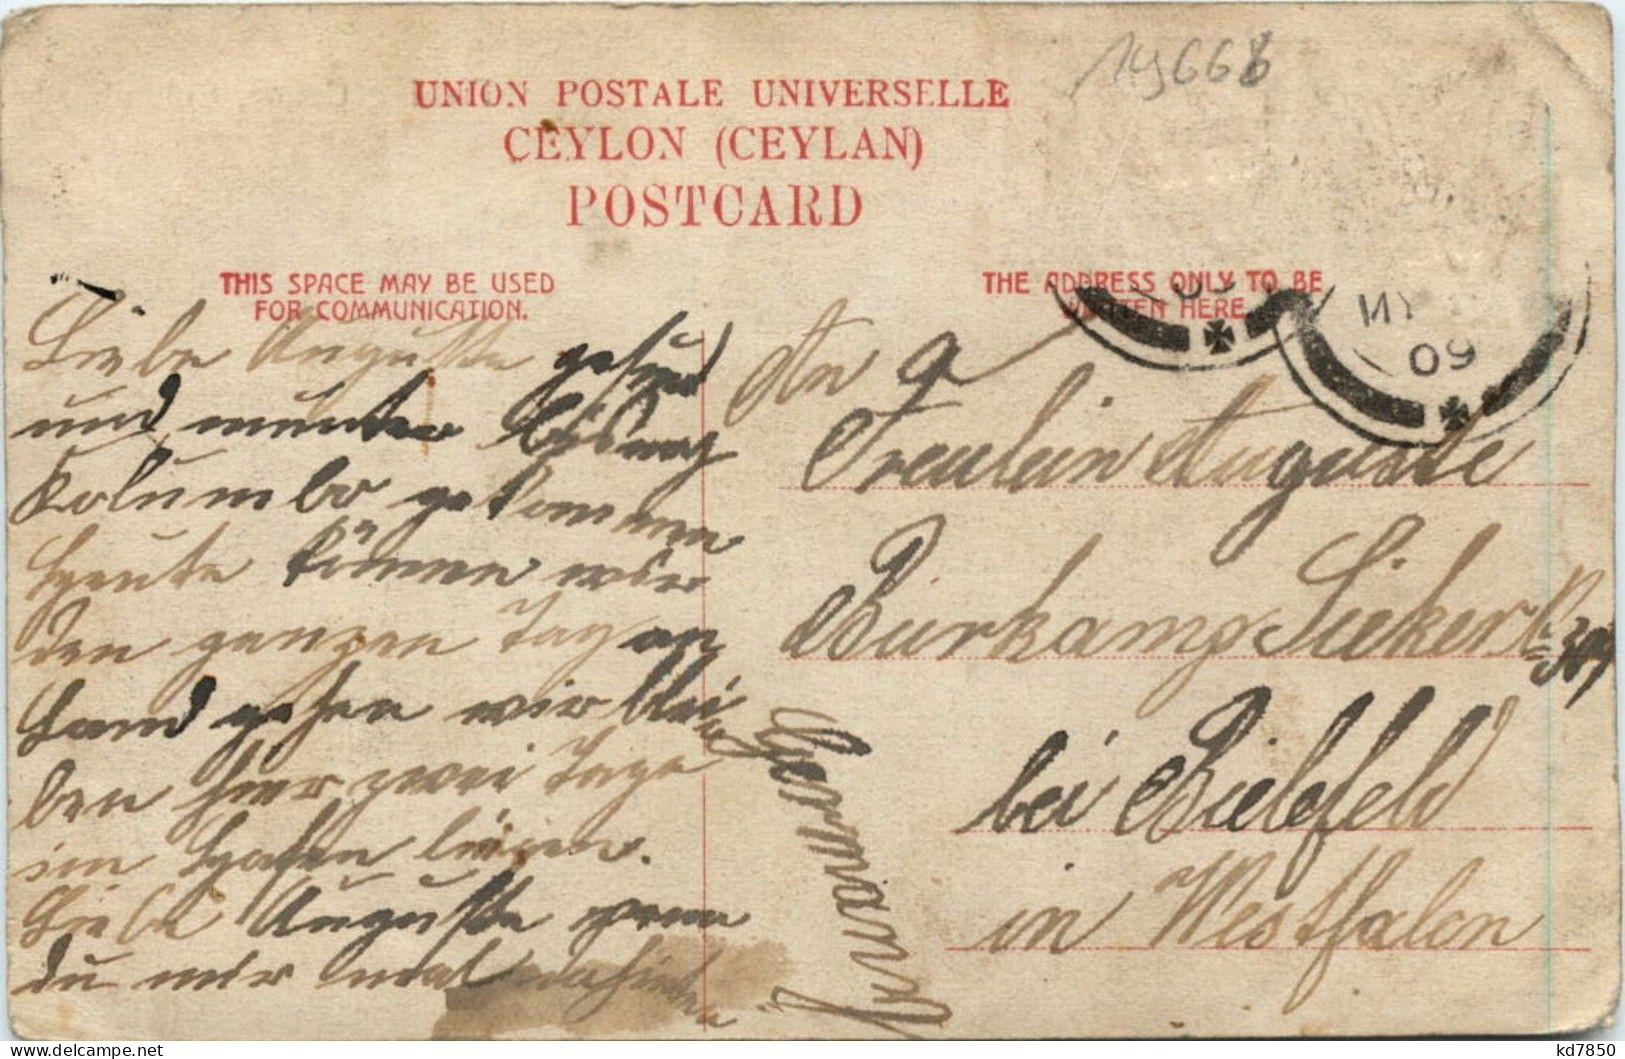 19668
UNION POSTALE UNIVERSELLE
CEYLON (CEYLAN)
POSTCARD
THIS SPACE MAY BE USED
FOR COMMUNICATION.
THE ADDRESS ONLY TO BE
WRITTEN HERE.
MY
09
Liebe Auguste gesund
und munter bis nach
Kolumbo gekommen
Heute können wir
den ganzen Tag an
Land gehen wir blei
ben hier zwei Tage
im Hafen liegen.
Liebe Auguste wenn
du mir mal
An
Freulein Auguste
Birkamp Sieker
bei Bielefeld
in Westfalen
Germany
kd7850